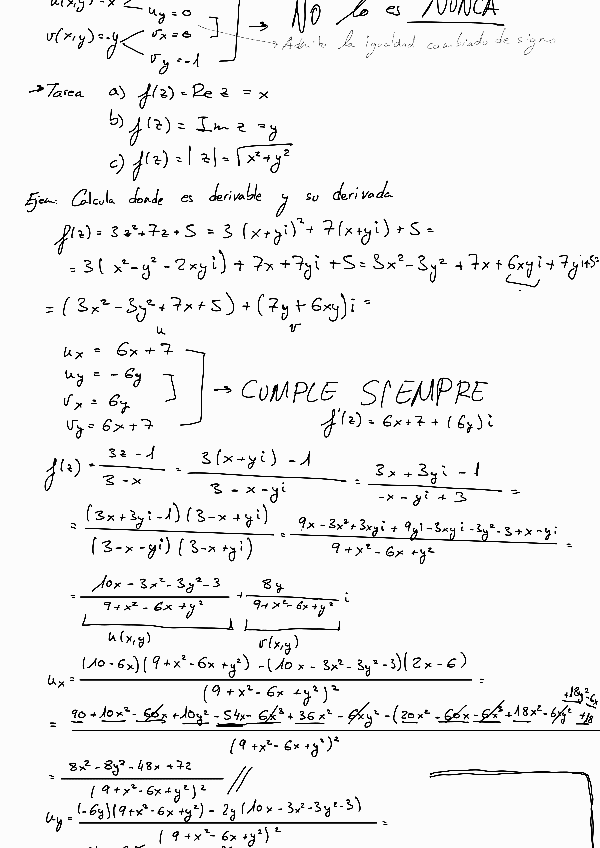 u(x,y) = x u_y = 0
v(x,y) = -y v_x = 0 → NO lo es NUNCA
v_y = -1 Admito la igualdad cambiado de signo
→ Tarea a) f(z) = Re z = x
b) f(z) = Im z = y
c) f(z) = |z| = √(x²+y²)
Ejem: Calcula donde es derivable y su derivada
f(z) = 3z²+7z+5 = 3(x+yi)²+7(x+yi)+5 =
= 3(x²-y²-2xyi)+7x+7yi+5 = 3x²-3y²+7x+6xyi+7yi+5=
= (3x²-3y²+7x+5)+(7y+6xy)i =
u v
u_x = 6x+7
u_y = -6y
v_x = 6y → CUMPLE SIEMPRE
v_y = 6x+7 f'(z) = 6x+7+(6y)i
f(z) = (3z-1)/(3-x) = (3(x+yi)-1)/(3-x-yi) = (3x+3yi-1)/(-x-yi+3) =
= ((3x+3yi-1)(3-x+yi))/((3-x-yi)(3-x+yi)) = (9x-3x²+3xyi+9yi-3xyi-3y²-3+x-yi)/(9+x²-6x+y²) =
= (10x-3x²-3y²-3)/(9+x²-6x+y²) + (8y)/(9+x²-6x+y²) i
u(x,y) v(x,y)
u_x = ((10-6x)(9+x²-6x+y²)-(10x-3x²-3y²-3)(2x-6))/((9+x²-6x+y²)²) =
+18y²-6x
= (90+10x²-60x+10y²-54x-6x³+36x²-6xy²-(20x²-60x-6x³+18x²-6xy²+18)/((9+x²-6x+y²)²)
= (8x²-8y²-48x+72)/((9+x²-6x+y²)²) //
u_y = ((-6y)(9+x²-6x+y²)-2y(10x-3x²-3y²-3))/((9+x²-6x+y²)²) =